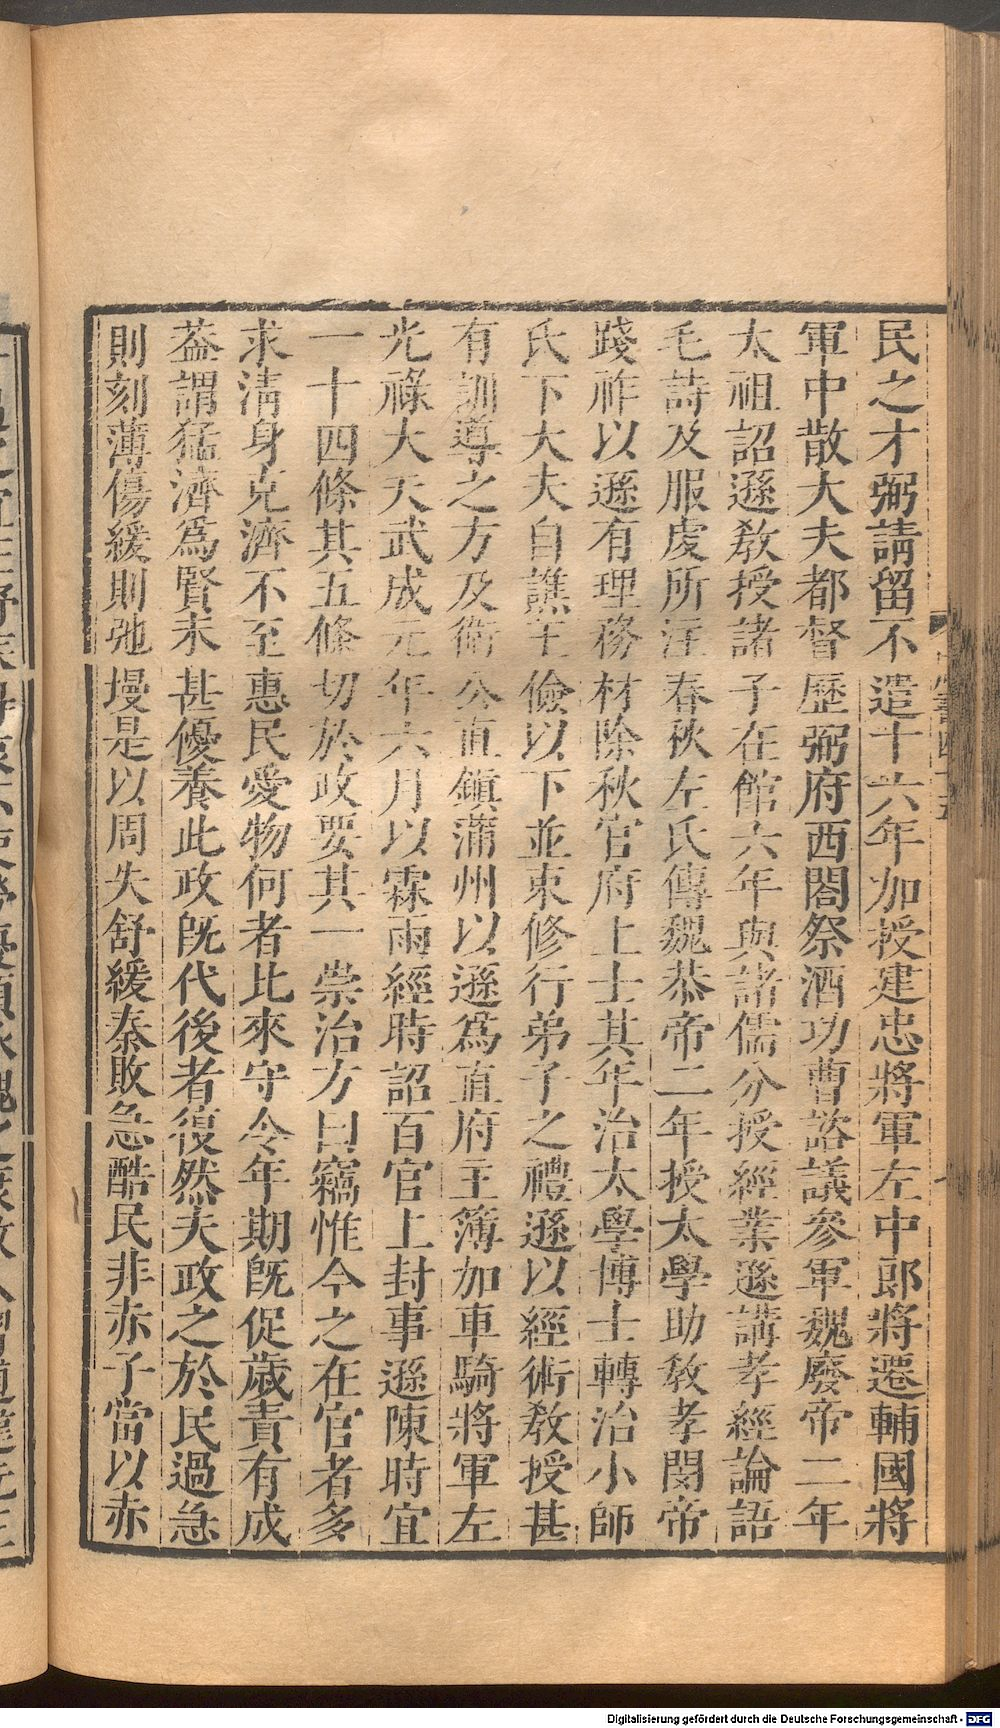 民之才弼請留不遣十六年加授建忠將軍左中郎將遷輔國將
軍中散大夫都督歷弼府西閤祭酒功曹諮議參軍魏廢帝二年
太祖詔遜敎授諸子在館六年與諸儒分授經業遜講孝經論語
毛詩及服虔所注春秋左氏傳魏恭帝二年授太學助敎孝閔帝
踐祚以遜有理務材除秋官府上士其年治太學博士轉治小師
氏下大夫自譙王儉以下並束修行弟子之禮遜以經術敎授甚
有訓導之方及衛公直鎭蒲州以遜爲直府主簿加車騎將軍左
光祿大夫武成元年六月以霖雨經時詔百官上封事遜陳時宜
一十四條其五條切於政要其一崇治方曰竊惟今之在官者多
求淸身克濟不至惠民愛物何者比來守令年期旣促歲責有成
葢謂猛濟爲賢未甚優養此政旣代後者復然夫政之於民過急
則刻薄傷緩則弛墁是以周失舒緩秦敗急酷民非赤子當以赤
Digitalisierung gefördert durch die Deutsche Forschungsgemeinschaft - DFG